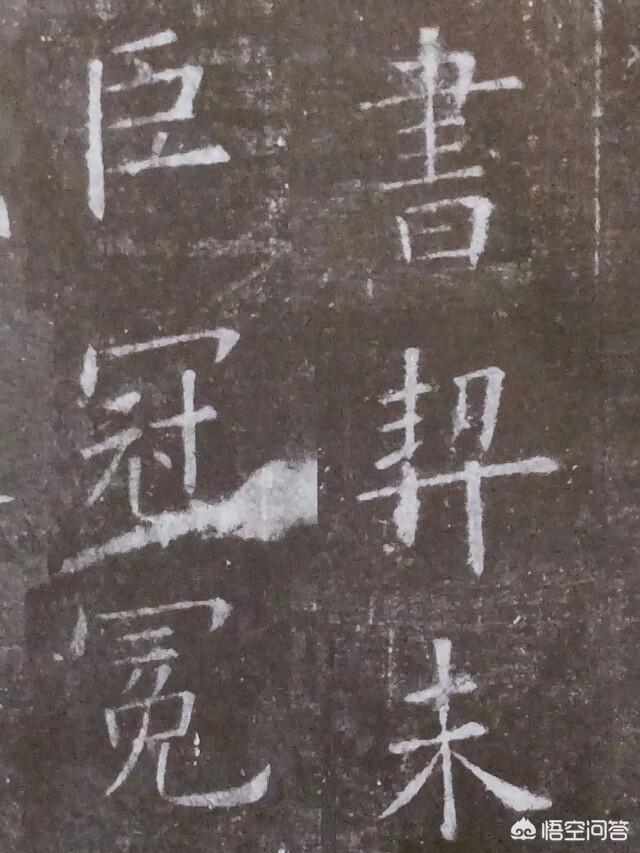 書契未
臣冠冕
悟空问答